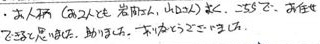 ・お人柄（お2人とも 岩間さん、山口さん）よく、こちらで、お任せ
できると思いました。助かりました。ありがとうございました。